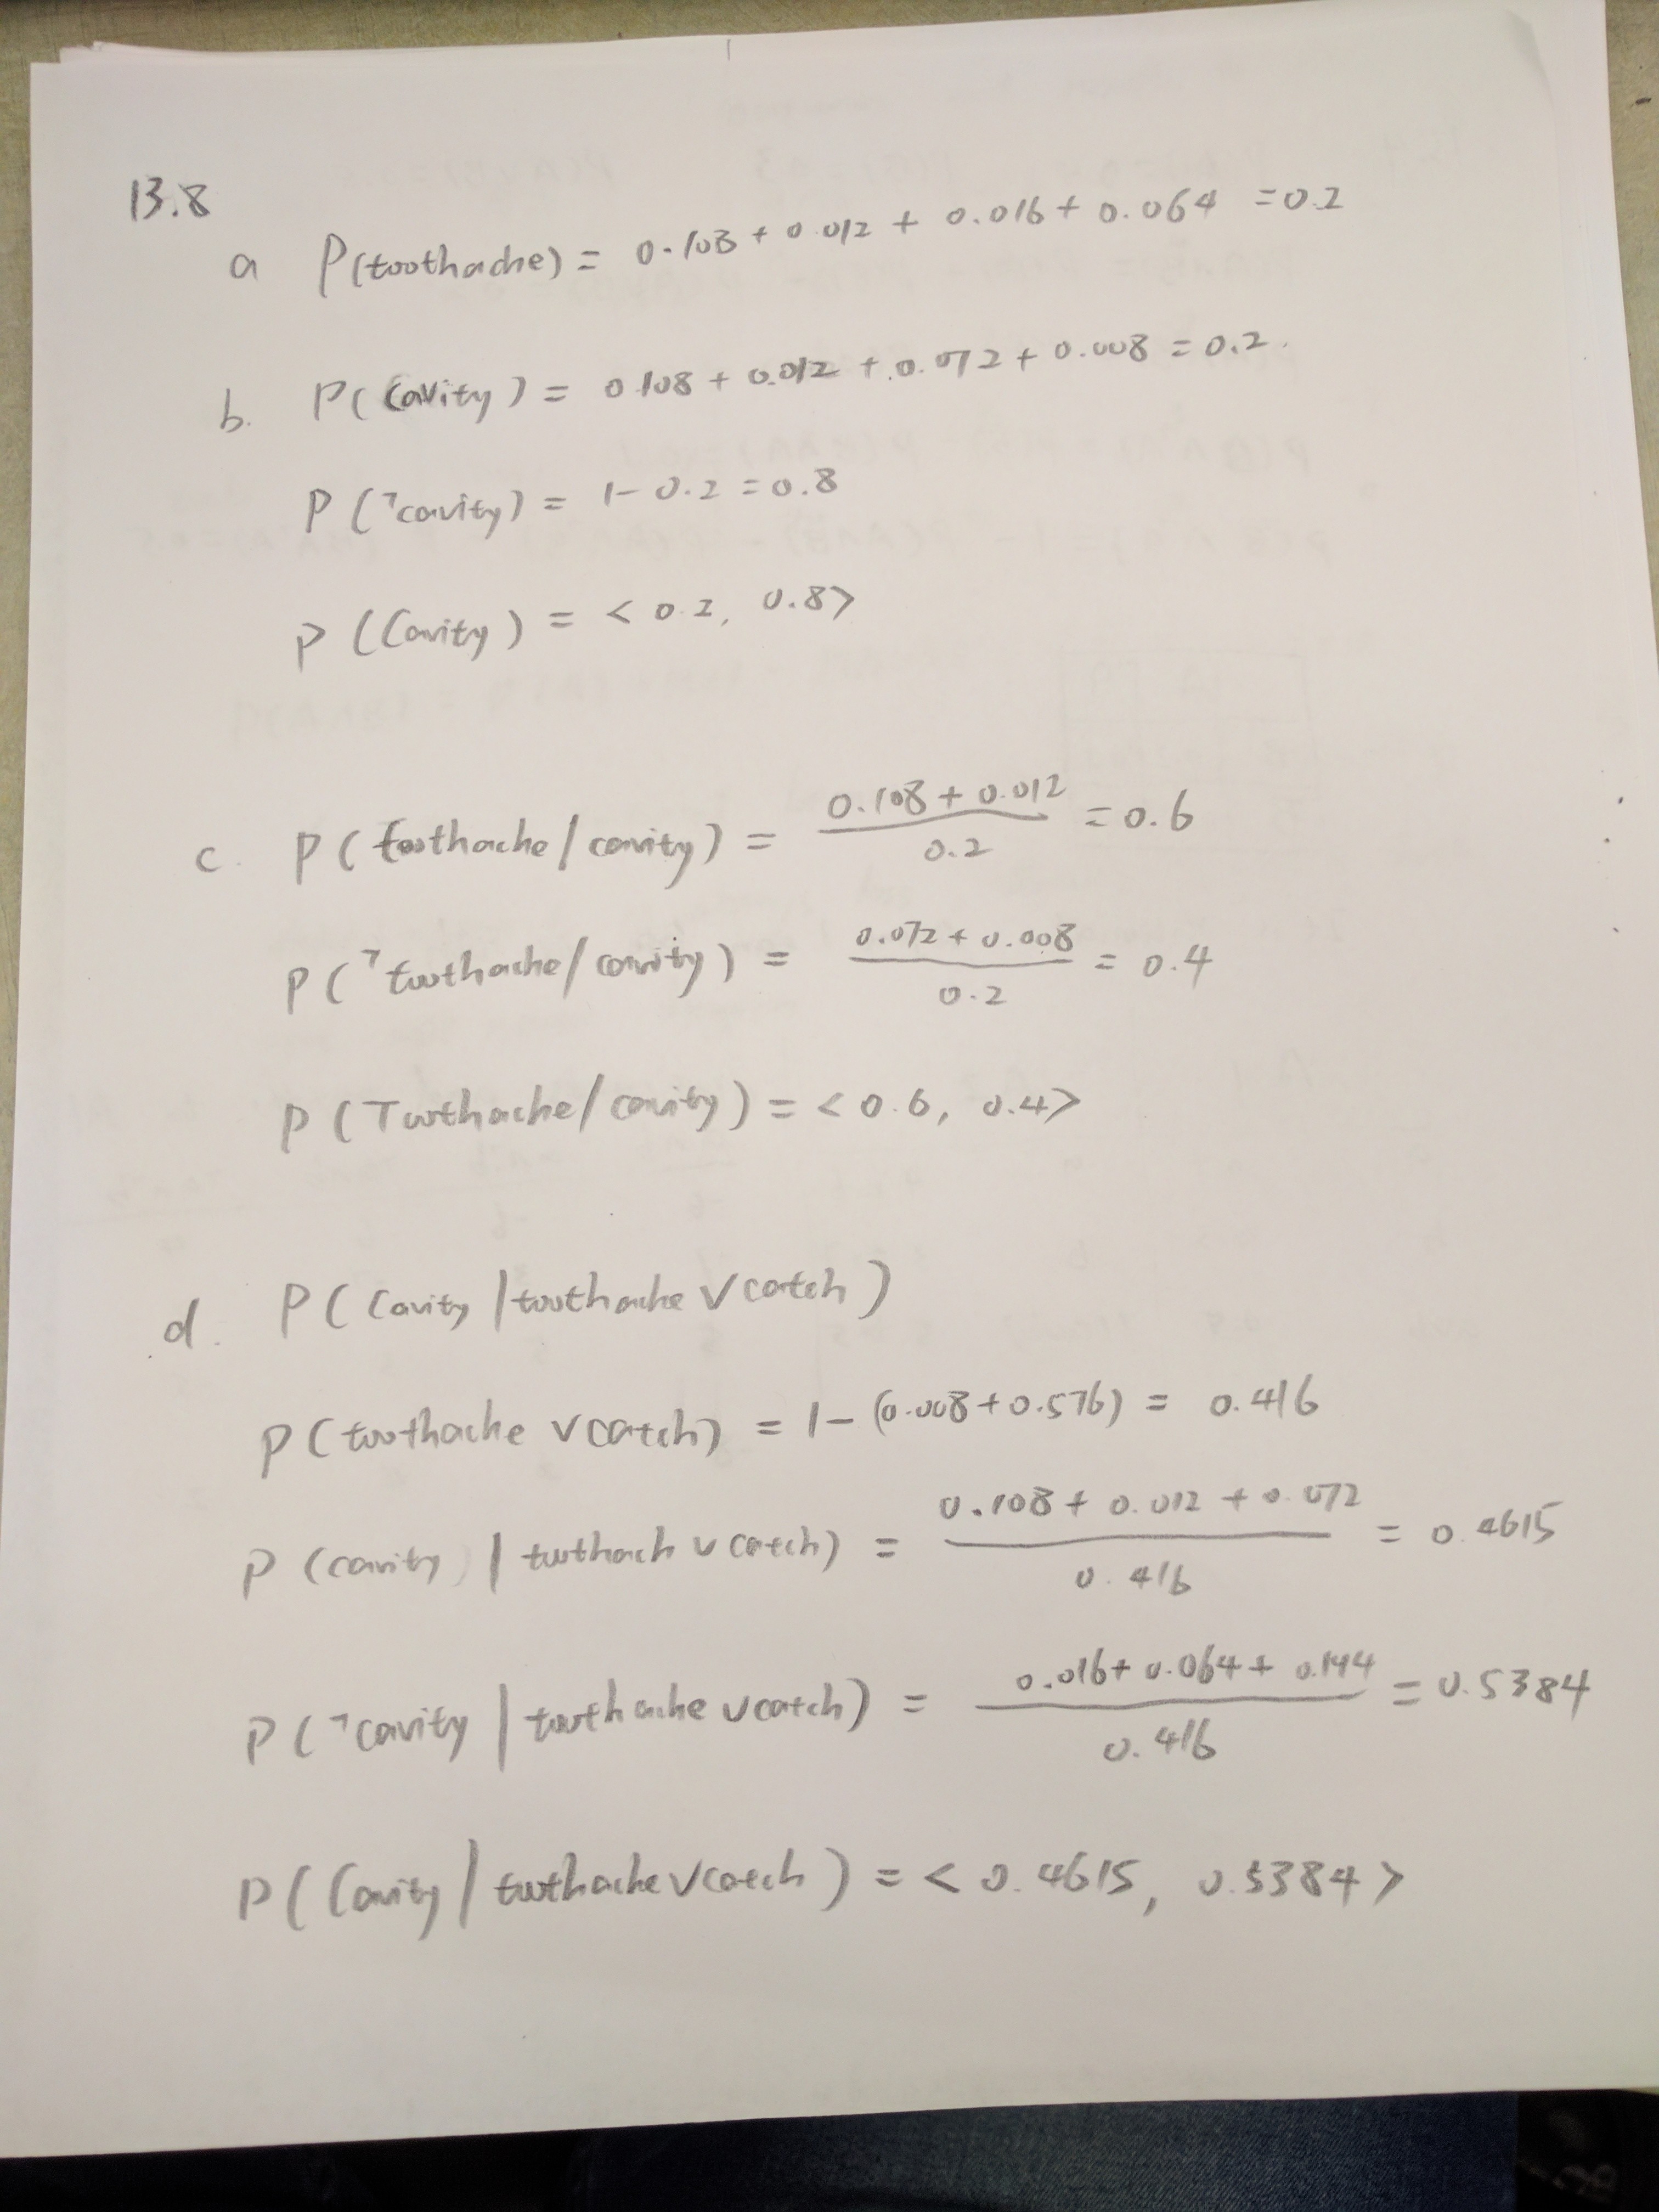 13.8
a P(toothache) = 0.108 + 0.012 + 0.016 + 0.064 = 0.2
b. P(Cavity) = 0.108 + 0.012 + 0.072 + 0.008 = 0.2.
P(¬cavity) = 1 - 0.2 = 0.8
P(Cavity) = < 0.2, 0.8>
c. P(toothache/cavity) = (0.108 + 0.012)/0.2 = 0.6
P(¬toothache/cavity) = (0.072 + 0.008)/0.2 = 0.4
P(Toothache/cavity) = < 0.6, 0.4>
d. P(Cavity | toothache ∨ catch)
P(toothache ∨ catch) = 1 - (0.008 + 0.576) = 0.416
P(cavity) | toothach ∨ catch) = (0.108 + 0.012 + 0.072)/0.416 = 0.4615
P(¬cavity | toothache ∨ catch) = (0.016 + 0.064 + 0.144)/0.416 = 0.5384
P(Cavity | toothache ∨ catch) = < 0.4615, 0.5384 >